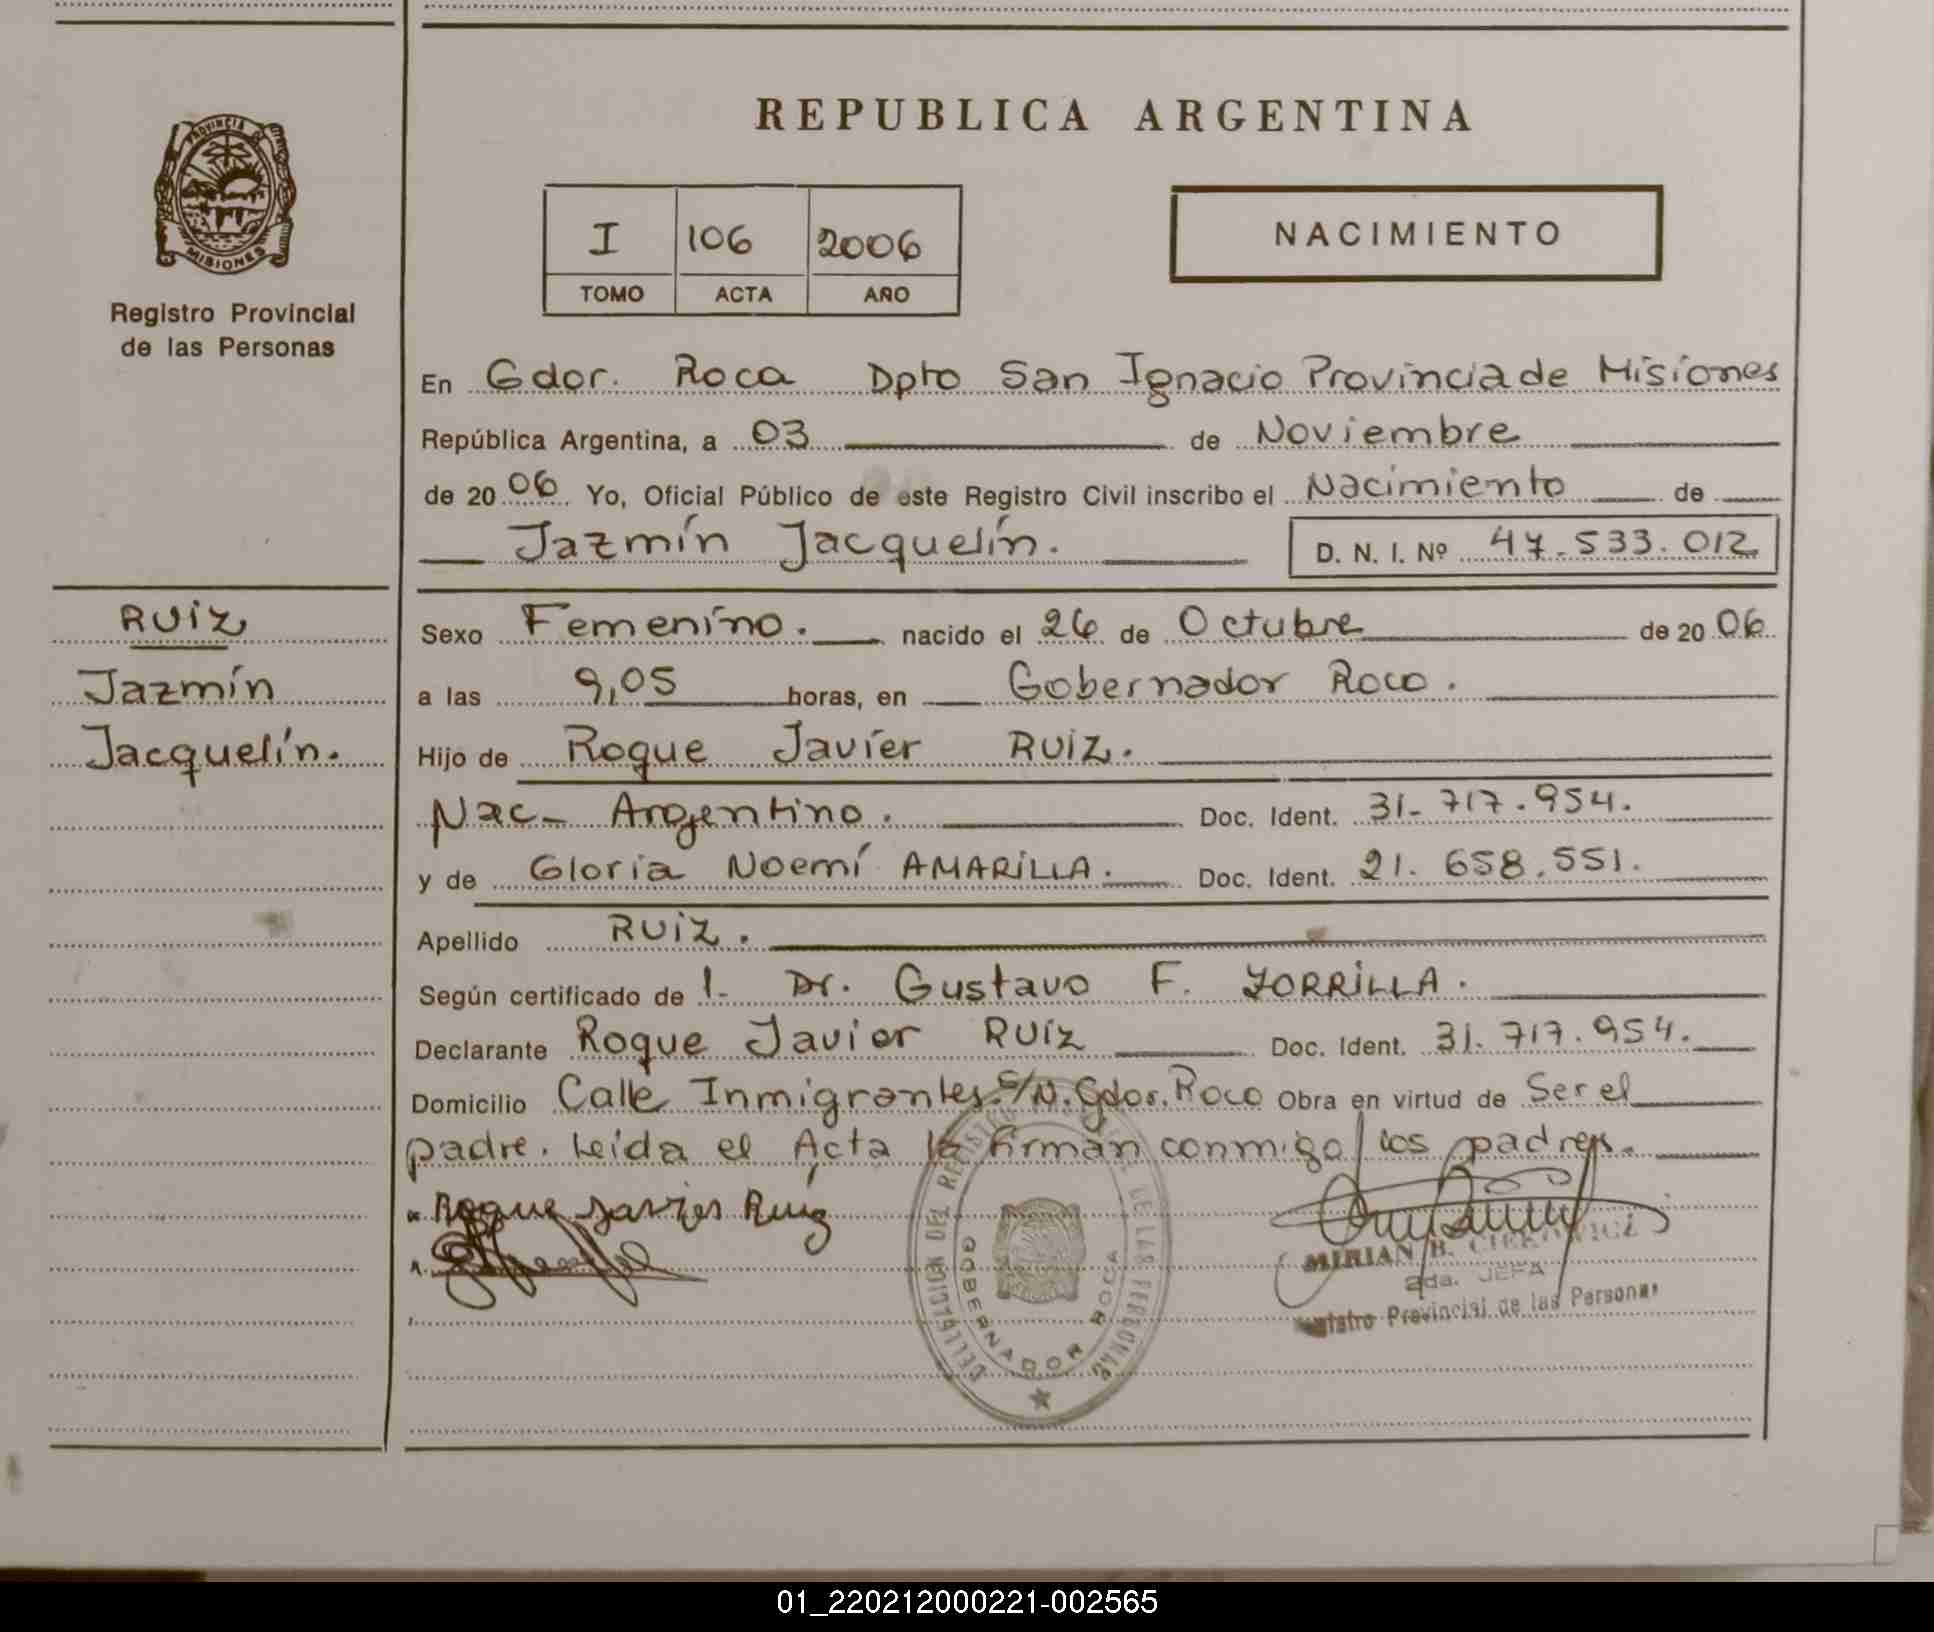 REPUBLICA ARGENTINA
PROVINCIA DE
MISIONES
Registro Provincial
de las Personas
I 106 2006
TOMO ACTA AÑO
NACIMIENTO
En Gdor. Roca Dpto San Ignacio Provincia de Misiones
República Argentina, a 03 de Noviembre
de 2006 Yo, Oficial Público de este Registro Civil inscribo el Nacimiento de
Jazmín Jacquelín. D. N. I. Nº 47.533.012
RUIZ
Jazmín
Jacquelín.
Sexo Femenino. nacido el 26 de Octubre de 2006
a las 9,05 horas, en Gobernador Roca.
Hijo de Roque Javier RUIZ.
Nac- Argentino. Doc. Ident. 31-717.954.
y de Gloria Noemí AMARILLA. Doc. Ident. 21.658.551.
Apellido RUIZ.
Según certificado de 1- Dr. Gustavo F. ZORRILLA.
Declarante Roque Javier RUIZ Doc. Ident. 31.717.954.
Domicilio Calle Inmigrantes S/N. Gdor. Roca Obra en virtud de Ser el
padre. Leída el Acta la firman conmigo los padres.
Roque Javier Ruiz
DELEGACION DEL REGISTRO DE LAS PERSONAS
GOBERNADOR ROCA
MIRIAN B.
2da. JEFA
Registro Provincial de las Personas
01_220212000221-002565